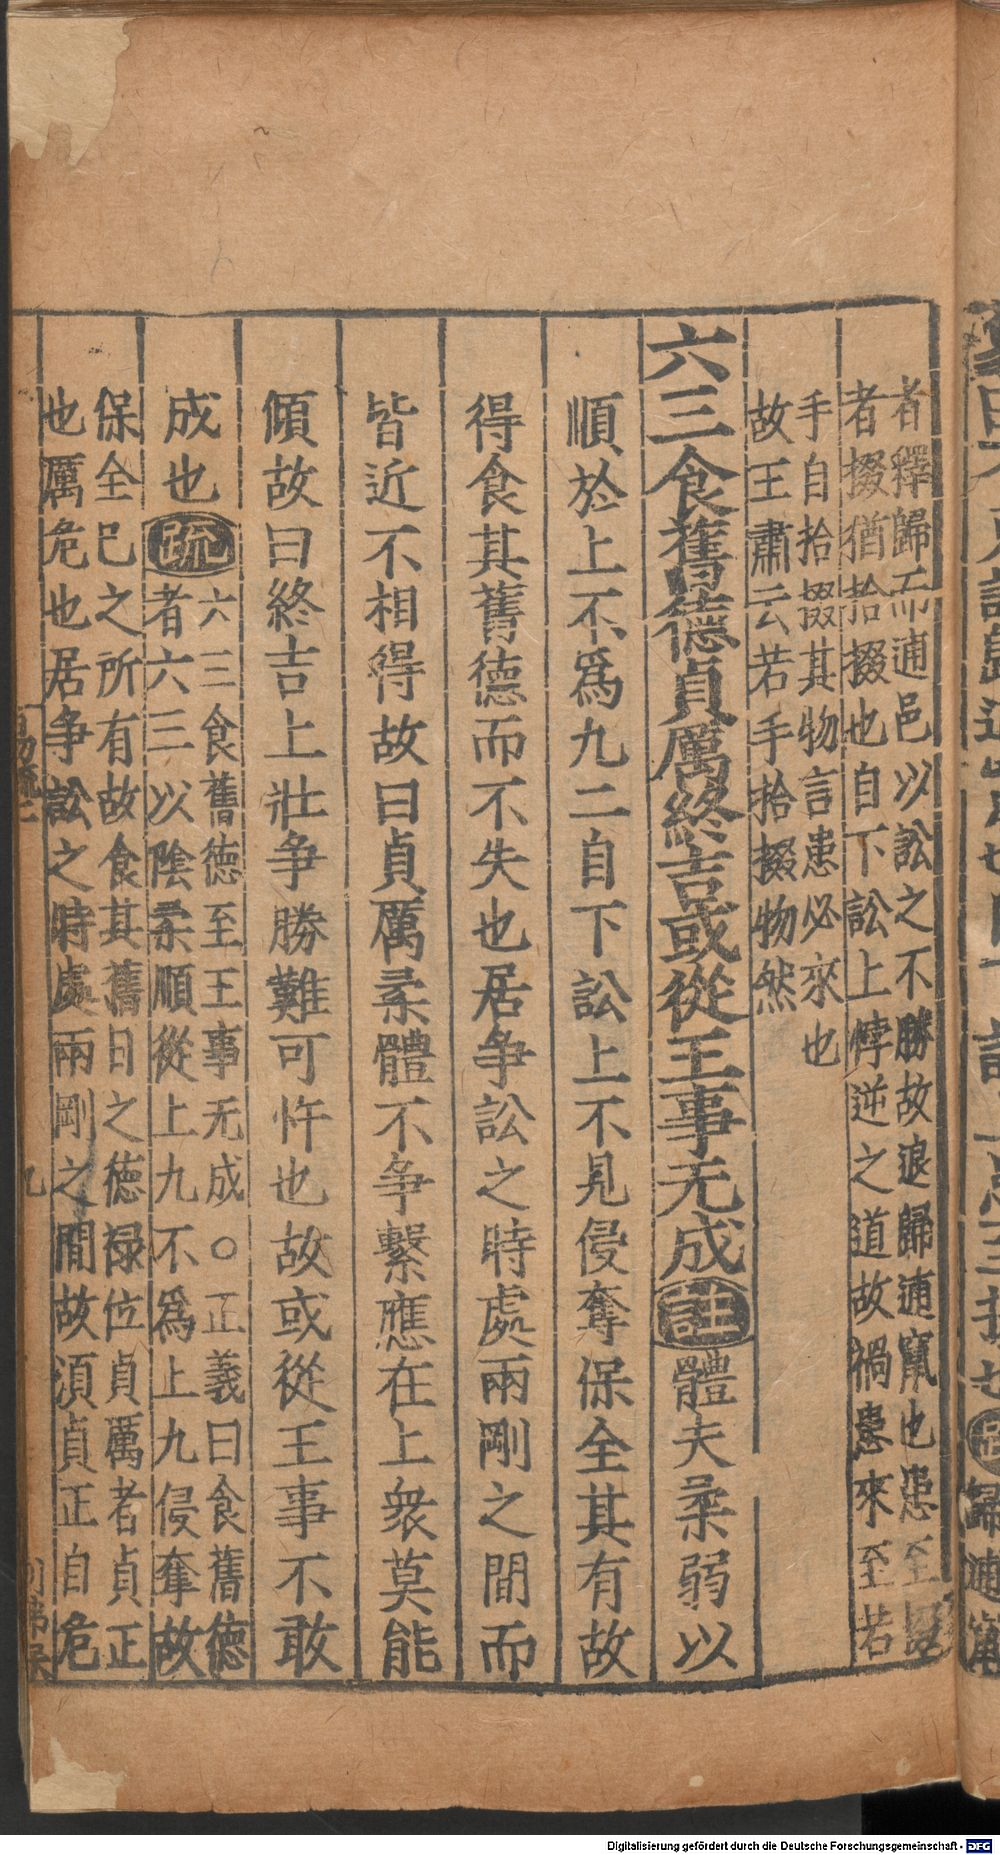 者釋歸而逋邑以訟之不勝故退歸逋竄也患至掇
者掇猶拾掇也自下訟上悖逆之道故禍患來至若
手自拾掇其物言患必來也
故王肅云若手拾掇物然
六三食舊德貞厲終吉或從王事无成註體夫柔弱以
順於上不為九二自下訟上不見侵奪保全其有故
得食其舊德而不失也居爭訟之時處兩剛之間而
皆近不相得故曰貞厲柔體不爭繫應在上衆莫能
傾故曰終吉上壯爭勝難可忤也故或從王事不敢
成也疏六三食舊德至王事无成○正義曰食舊德
者六三以隂柔順從上九不為上九侵奪故
保全已之所有故食其舊日之德禄位貞厲者貞正
也厲危也居爭訟之時處兩剛之間故須貞正自危
Digitalisierung gefördert durch die Deutsche Forschungsgemeinschaft - DFG